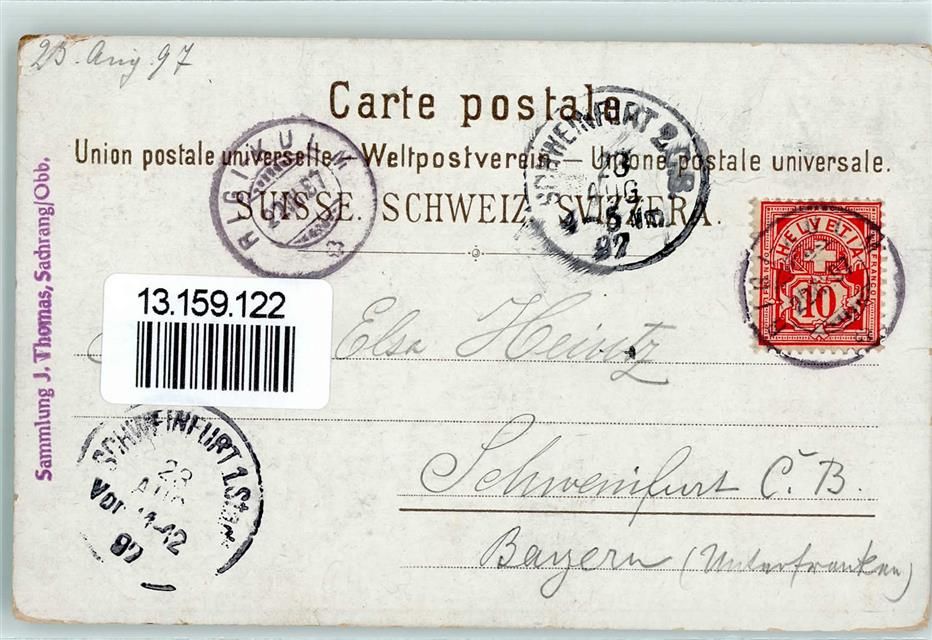 23. Aug. 97
Carte postale
Union postale universelle – Weltpostverein – Unione postale universale.
SUISSE. SCHWEIZ. SVIZZERA.
RIGI-KULM
SCHWEINFURT 2
23
AUG
97
HELVETIA
FRANCO
FRANCO
10
Sammlung J. Thomas, Sachrang/Obb.
13.159.122
Elsa Heintz
SCHWEINFURT 1.
23
AUG
Vor 11-12
97
Schweinfurt
Bayern (Unterfranken)